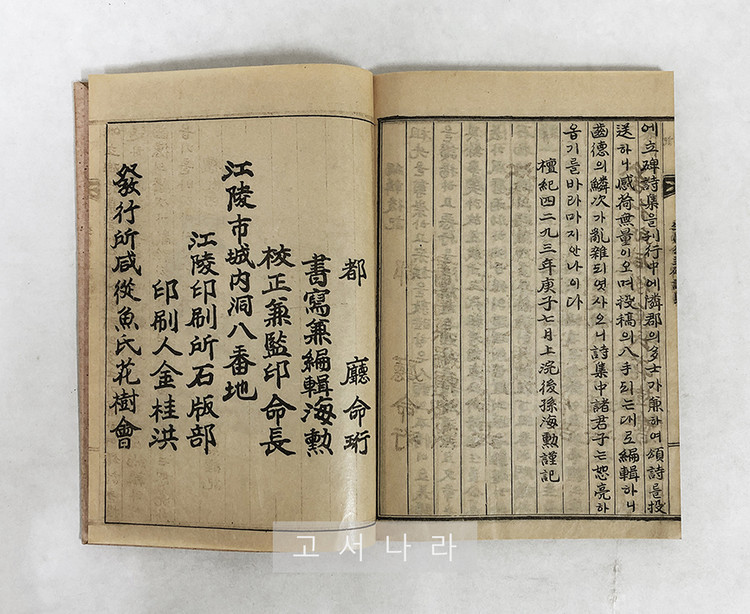 에 立碑詩集을 刊行中에 隣郡의 多士가 兼하여 頌詩를 投
送하니 感荷無量이오며 投稿의 入手되는대로 編輯하니
齒德의 鱗次가 亂雜되엿사오니 詩集中諸君子는 恕亮하
옵기를 바라마지안나이다
檀紀四二九三年庚子七月上浣後孫海勳謹記
都 廳 命珩
書寫兼編輯海勳
校正兼監印命長
江陵市城內洞八番地
江陵印刷所石版部
印刷人金桂洪
發行所咸從魚氏花樹會
고서나라